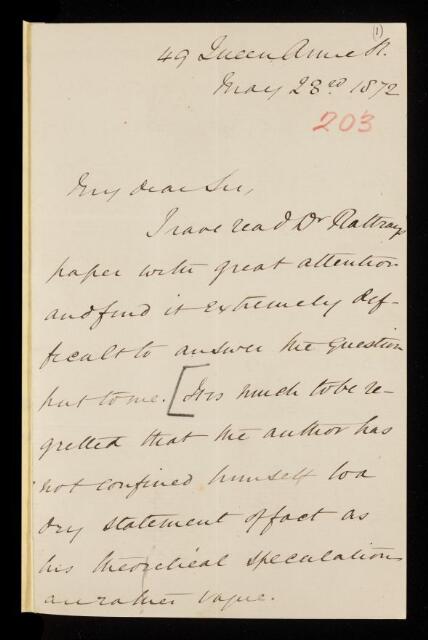 (1)
49 Queen Anne St.
May 23rd 1872
203
My dear Sir,
I have read Dr Rattray's
paper with great attention
and find it extremely dif-
ficult to answer the question
put to me. [It is much to be re-
gretted that the author has
not confined himself to a
dry statement of fact as
his theoretical speculations
are rather vague.